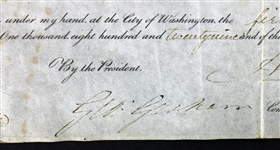 under my hand, at the City of Washington, the
One thousand, eight hundred and twentynine and of the
By the President.
G.W. Graham
Com